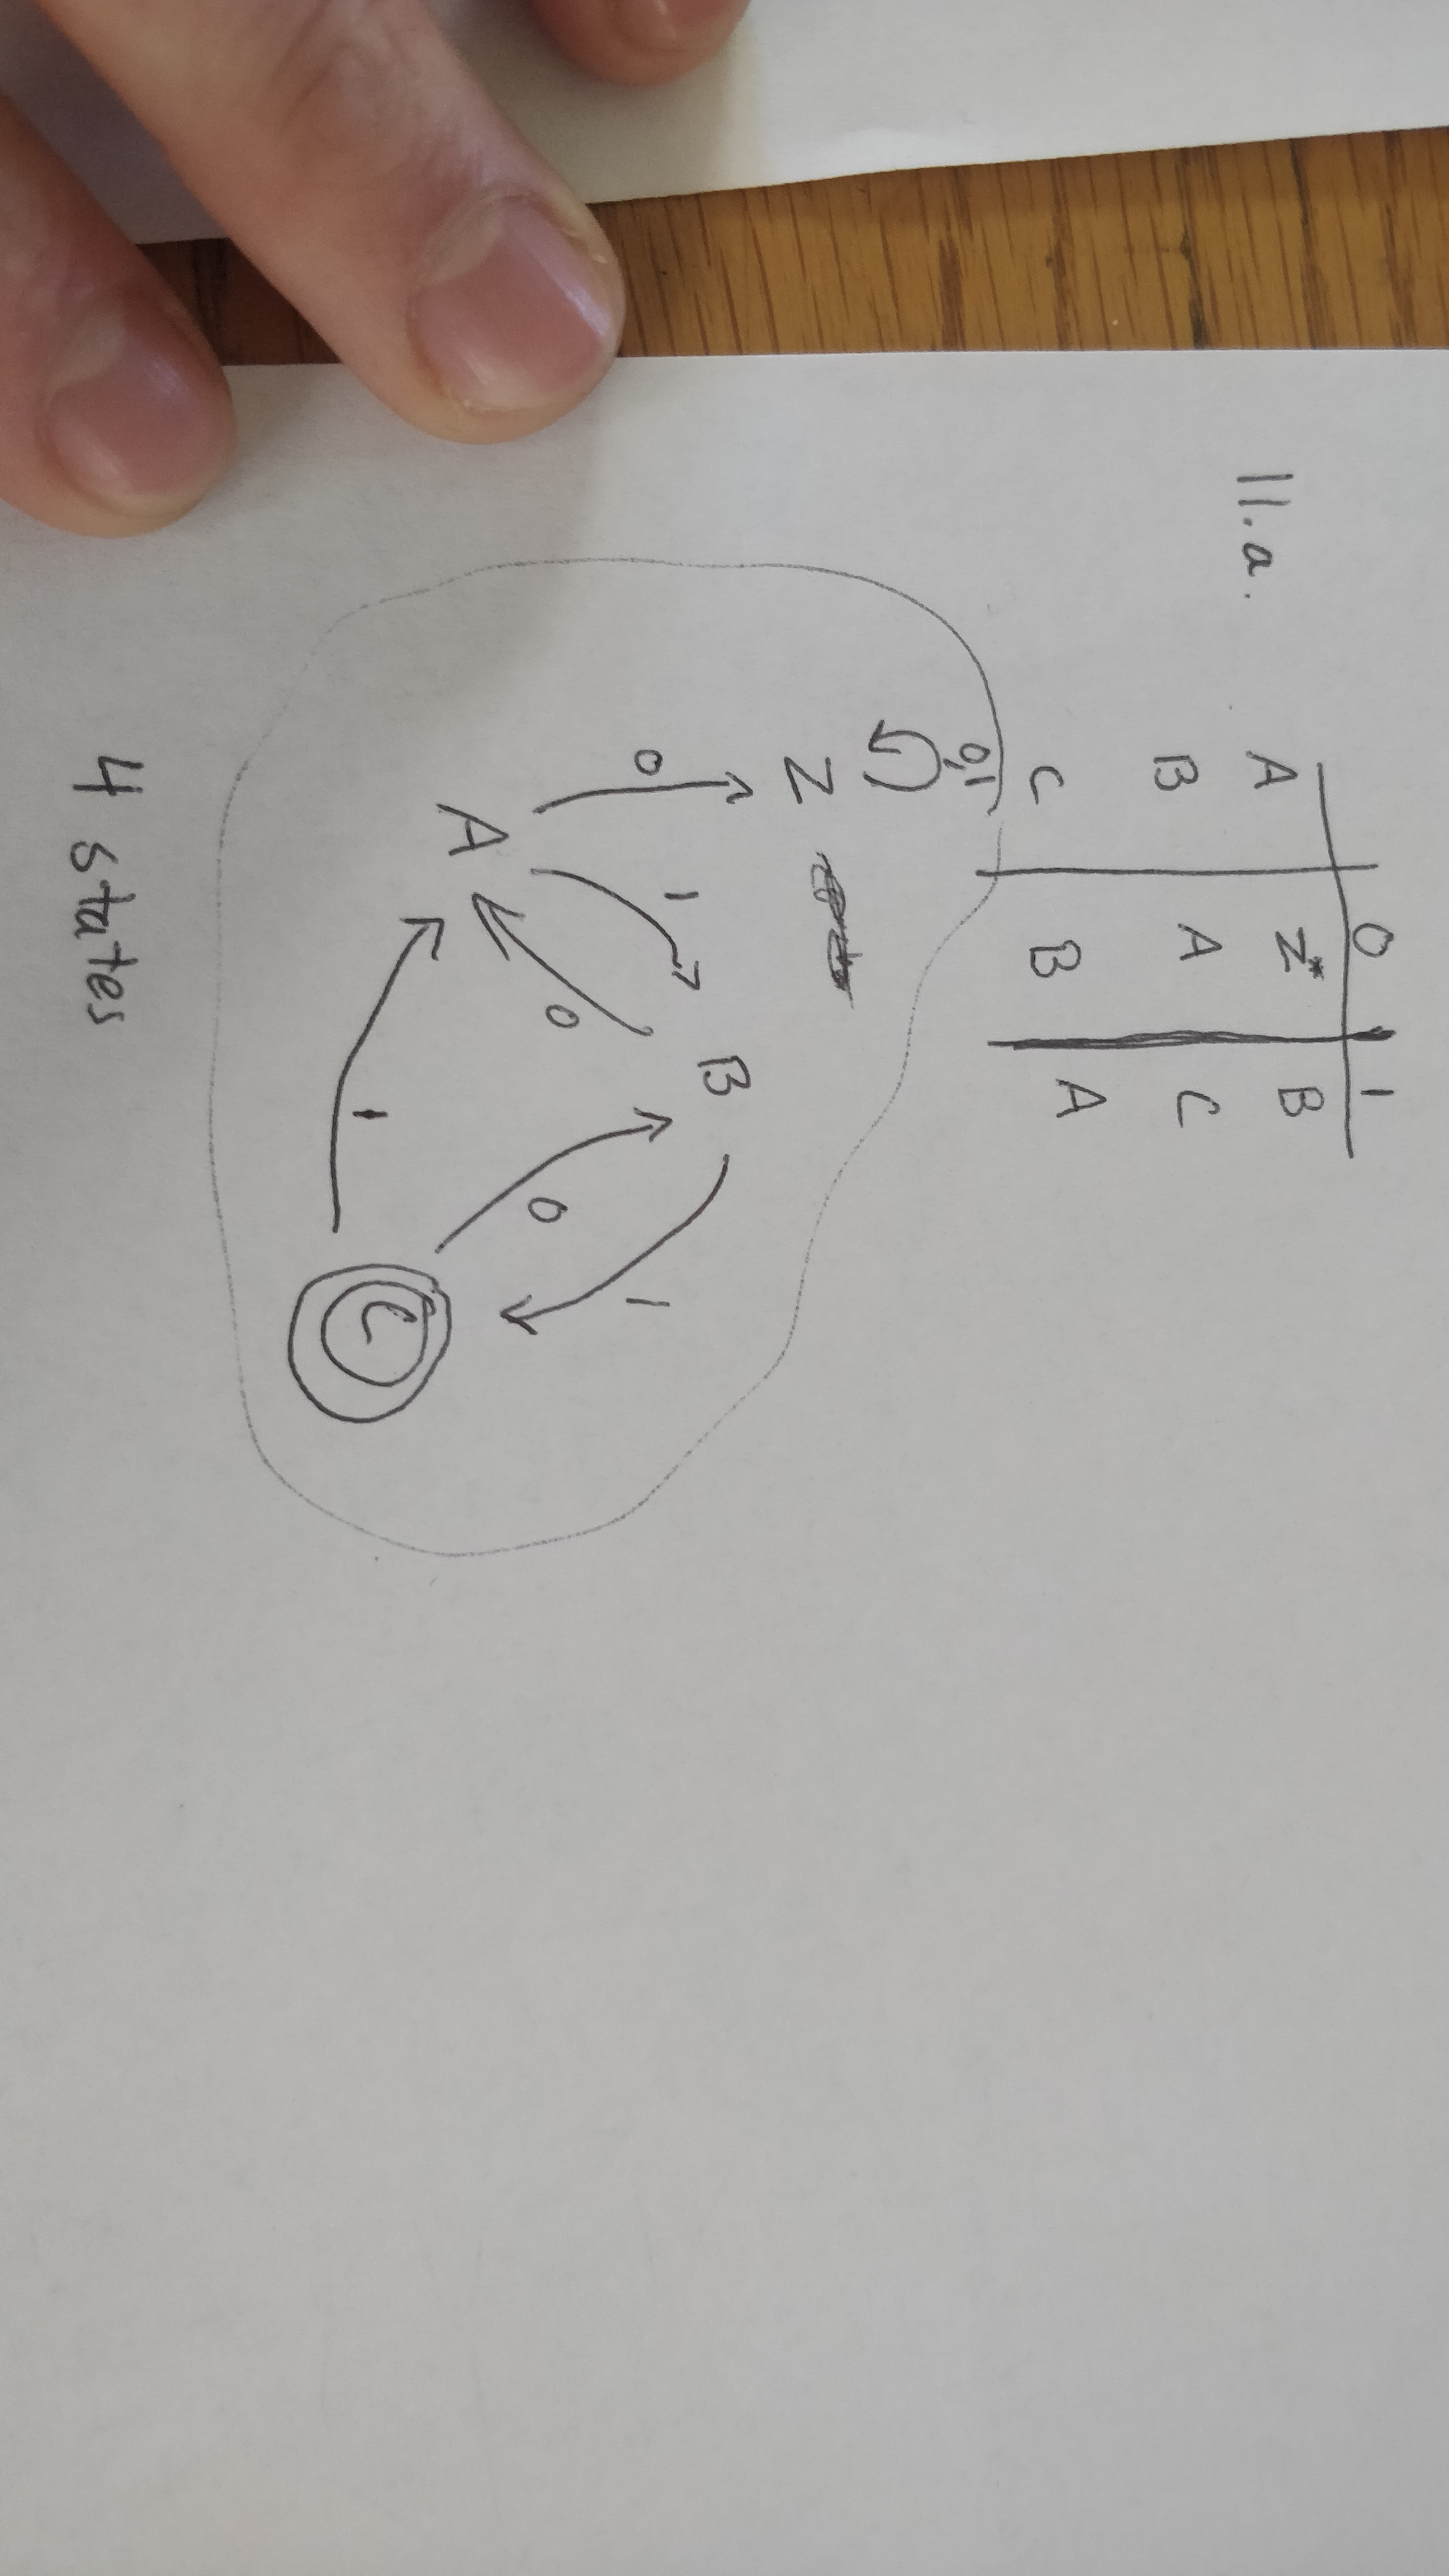 11.a.
0 1
A Z* B
B A C
C B A
0,1
Z
0 1 B
A 0 0 1
1
C
4 states